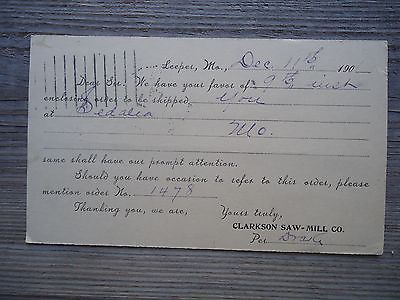 Leeper, Mo., Dec 11th 190
Dear Sir: We have your favor of 9th inst
enclosing order to be shipped you
at Sedalia
Mo.
same shall have our prompt attention.
Should you have occasion to refer to this order, please
mention order No. 1478
Thanking you, we are, Yours truly,
CLARKSON SAW-MILL CO.
Per